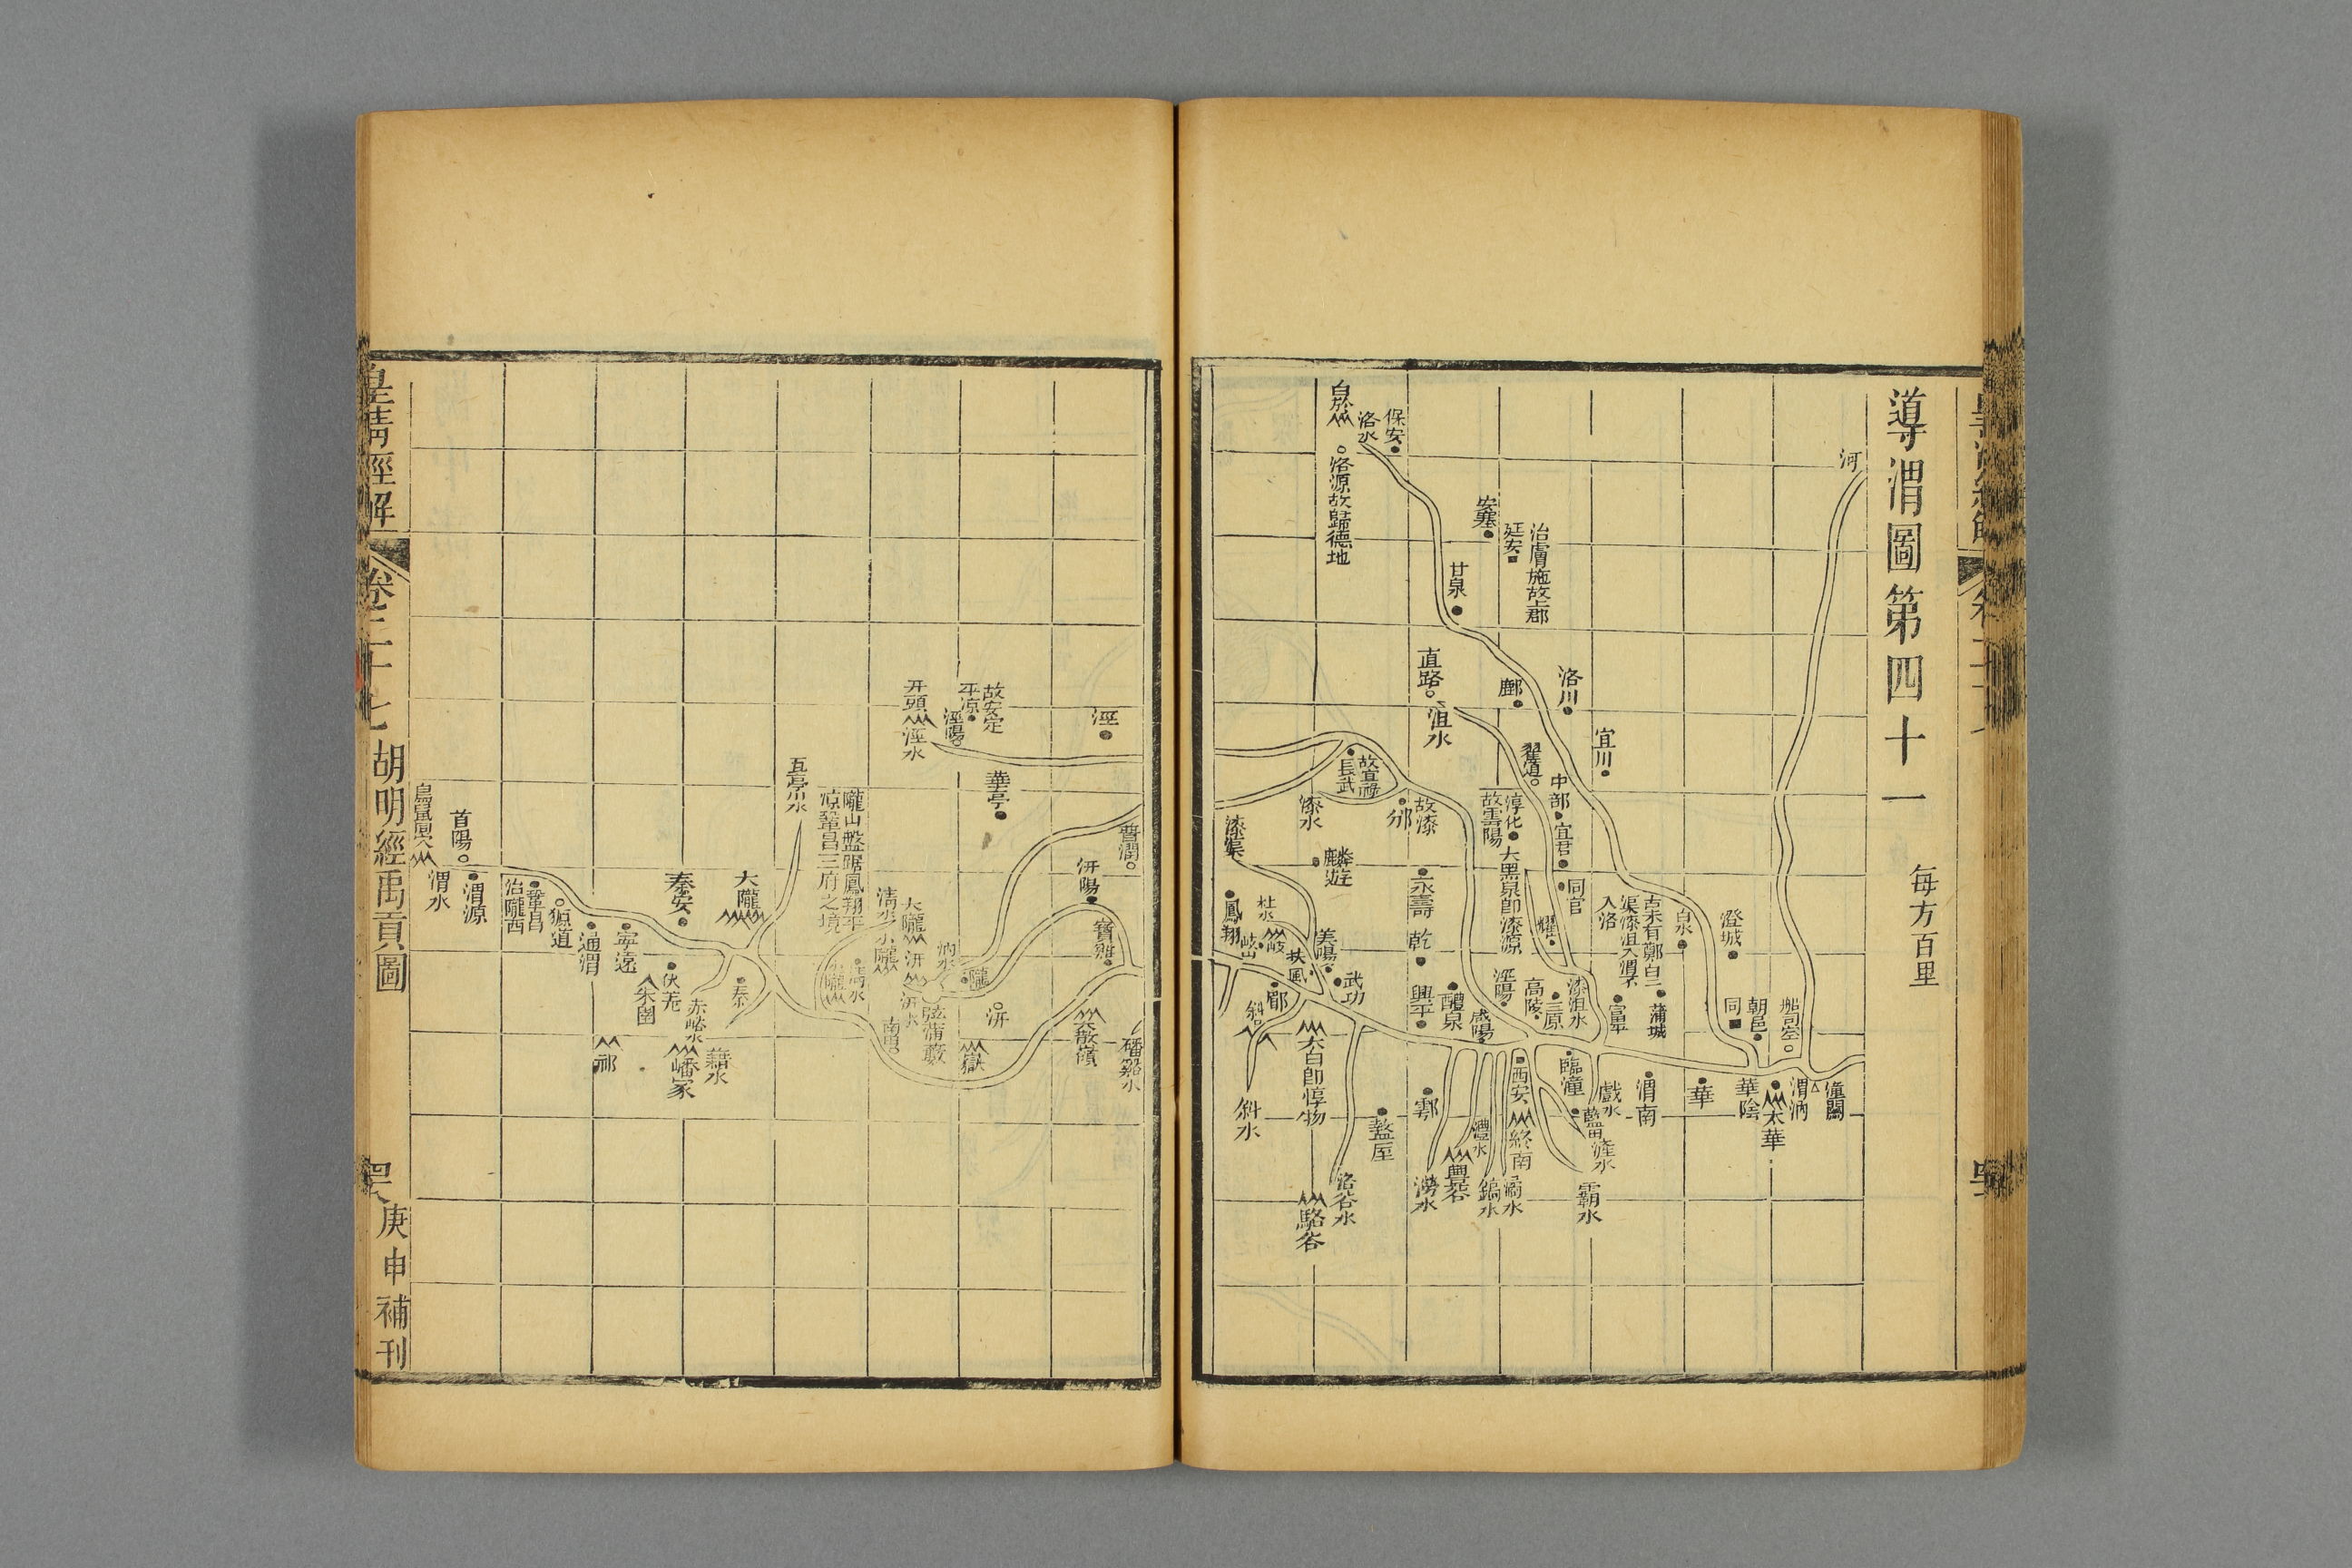 導渭圖第四十一
每方百里
河
潼關
渭汭
太華
華陰
船司空
朝邑
同
華
澄城
白水
蒲城
渭南
古未有鄭白二
渠漆沮入渭不
入洛
富平
戲水
藍田
滻水
霸水
臨潼
漆沮水
三原
高陵
同官
耀
宜君
中部
宜川
洛川
翟道
鄜
治膚施故上郡
延安
安塞
甘泉
保安
洛水
白於
洛源故歸德地
直路
沮水
淳化
故雲陽
大黑泉即漆源
涇陽
咸陽
西安
終南
潏水
鎬水
灃水
豐谷
澇水
鄠
醴泉
興平
乾
永壽
故漆
邠
故宜祿
長武
漆水
麟遊
漆渠
鳳翔
杜水
岐
岐山
美陽
扶風
武功
郿
斜水
太白即惇物
盩厔
洛谷水
駱谷
涇
汧陽
寶雞
磻谿水
大散嶺
故安定
平涼
涇陽
幵頭
涇水
華亭
汭水
隴
汧
嶽
弦蒲藪
汧水
大隴
汧
清水
小隴
南由
清水
隴山盤踞鳳翔平
涼鞏昌三府之境
五亭川水
大隴
秦安
秦
藉水
嶓冢
赤峪水
伏羌
朱圉
寧遠
通渭
邧道
鞏昌
治隴西
渭源
首陽
渭水
鳥鼠同穴
皇清經解
卷二十七
胡明經禹貢圖
庚申補刊